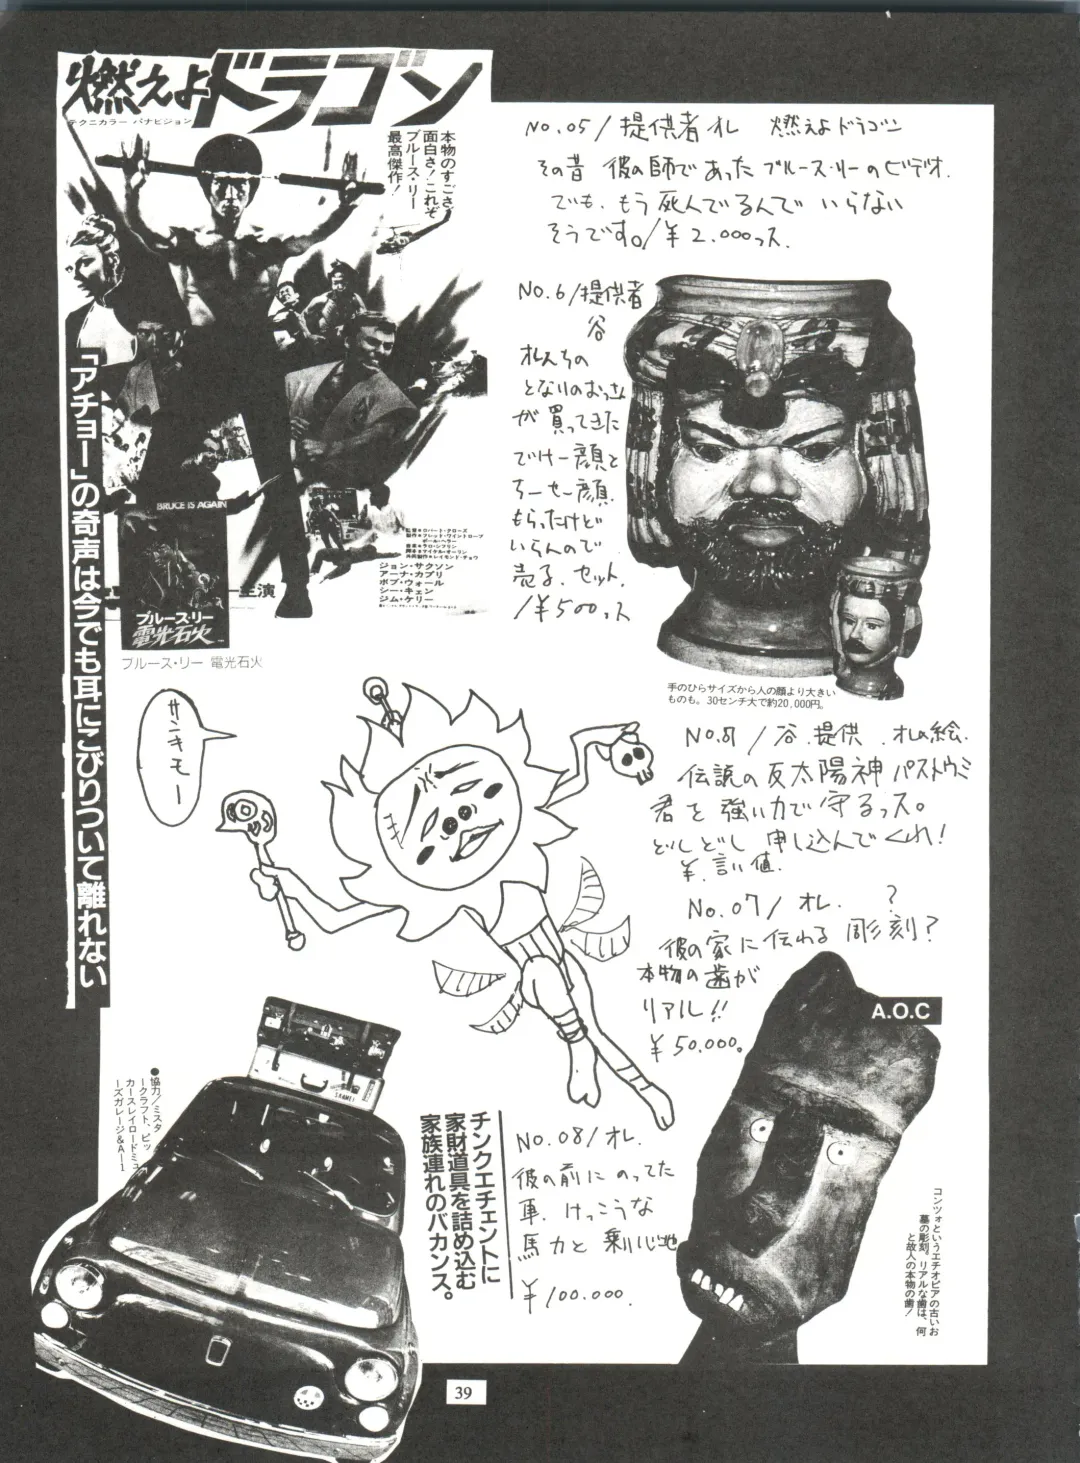 燃えよドラゴン
テクニカラー パナビジョン
本物のすごさ
面白さ!これぞ
ブルース・リー
最高傑作!
「アチョー」の奇声は今でも耳にこびりついて離れない
BRUCE IS AGAIN
ブルース・リー
電光石火
主演
監督●ロバート・クローズ
製作●フレッド・ワイントローブ
ポール・ヘラー
音楽●ラロ・シフリン
脚本●マイケル・オーリン
共同製作●レイモンド・チョウ
ジョン・サクソン
アーナ・カプリ
ボブ・ウォール
シー・キェン
ジム・ケリー
ブルース・リー 電光石火
No.05/提供者オレ 燃えよドラゴン
その昔 彼の師であったブルース・リーのビデオ.
でも、もう死んでるんで いらない
そうです。/¥2.000っス.
No.6/提供者
谷
オレんちの
となりのおっさん
が買ってきた
でけー顔と
ちーせー顔.
もらったけど
いらんので
売る.セット.
/¥500っス
手のひらサイズから人の顔より大きい
ものも。30センチ大で約20,000円。
サンキモー
No.8/谷.提供.オレの絵.
伝説の反太陽神パストウミ
君を強い力で守るっス。
どしどし申し込んでくれ!
¥.言い値.
No.07/オレ. ?
彼の家に伝わる彫刻?
本物の歯が
リアル!!
¥50.000。
A.O.C
コンツォというエチオピアの古いお
墓の彫刻。リアルな歯は、何
と故人の本物の歯!
●協力/ミスタ
ークラフト、ビッ
カースレイロードミュ
ーズガレージ&A—1
チンクエチェントに
家財道具を詰め込む
家族連れのバカンス。
No.08/オレ.
彼の前にのってた
車.けっこうな
馬力と乗り心地
¥100.000.
39